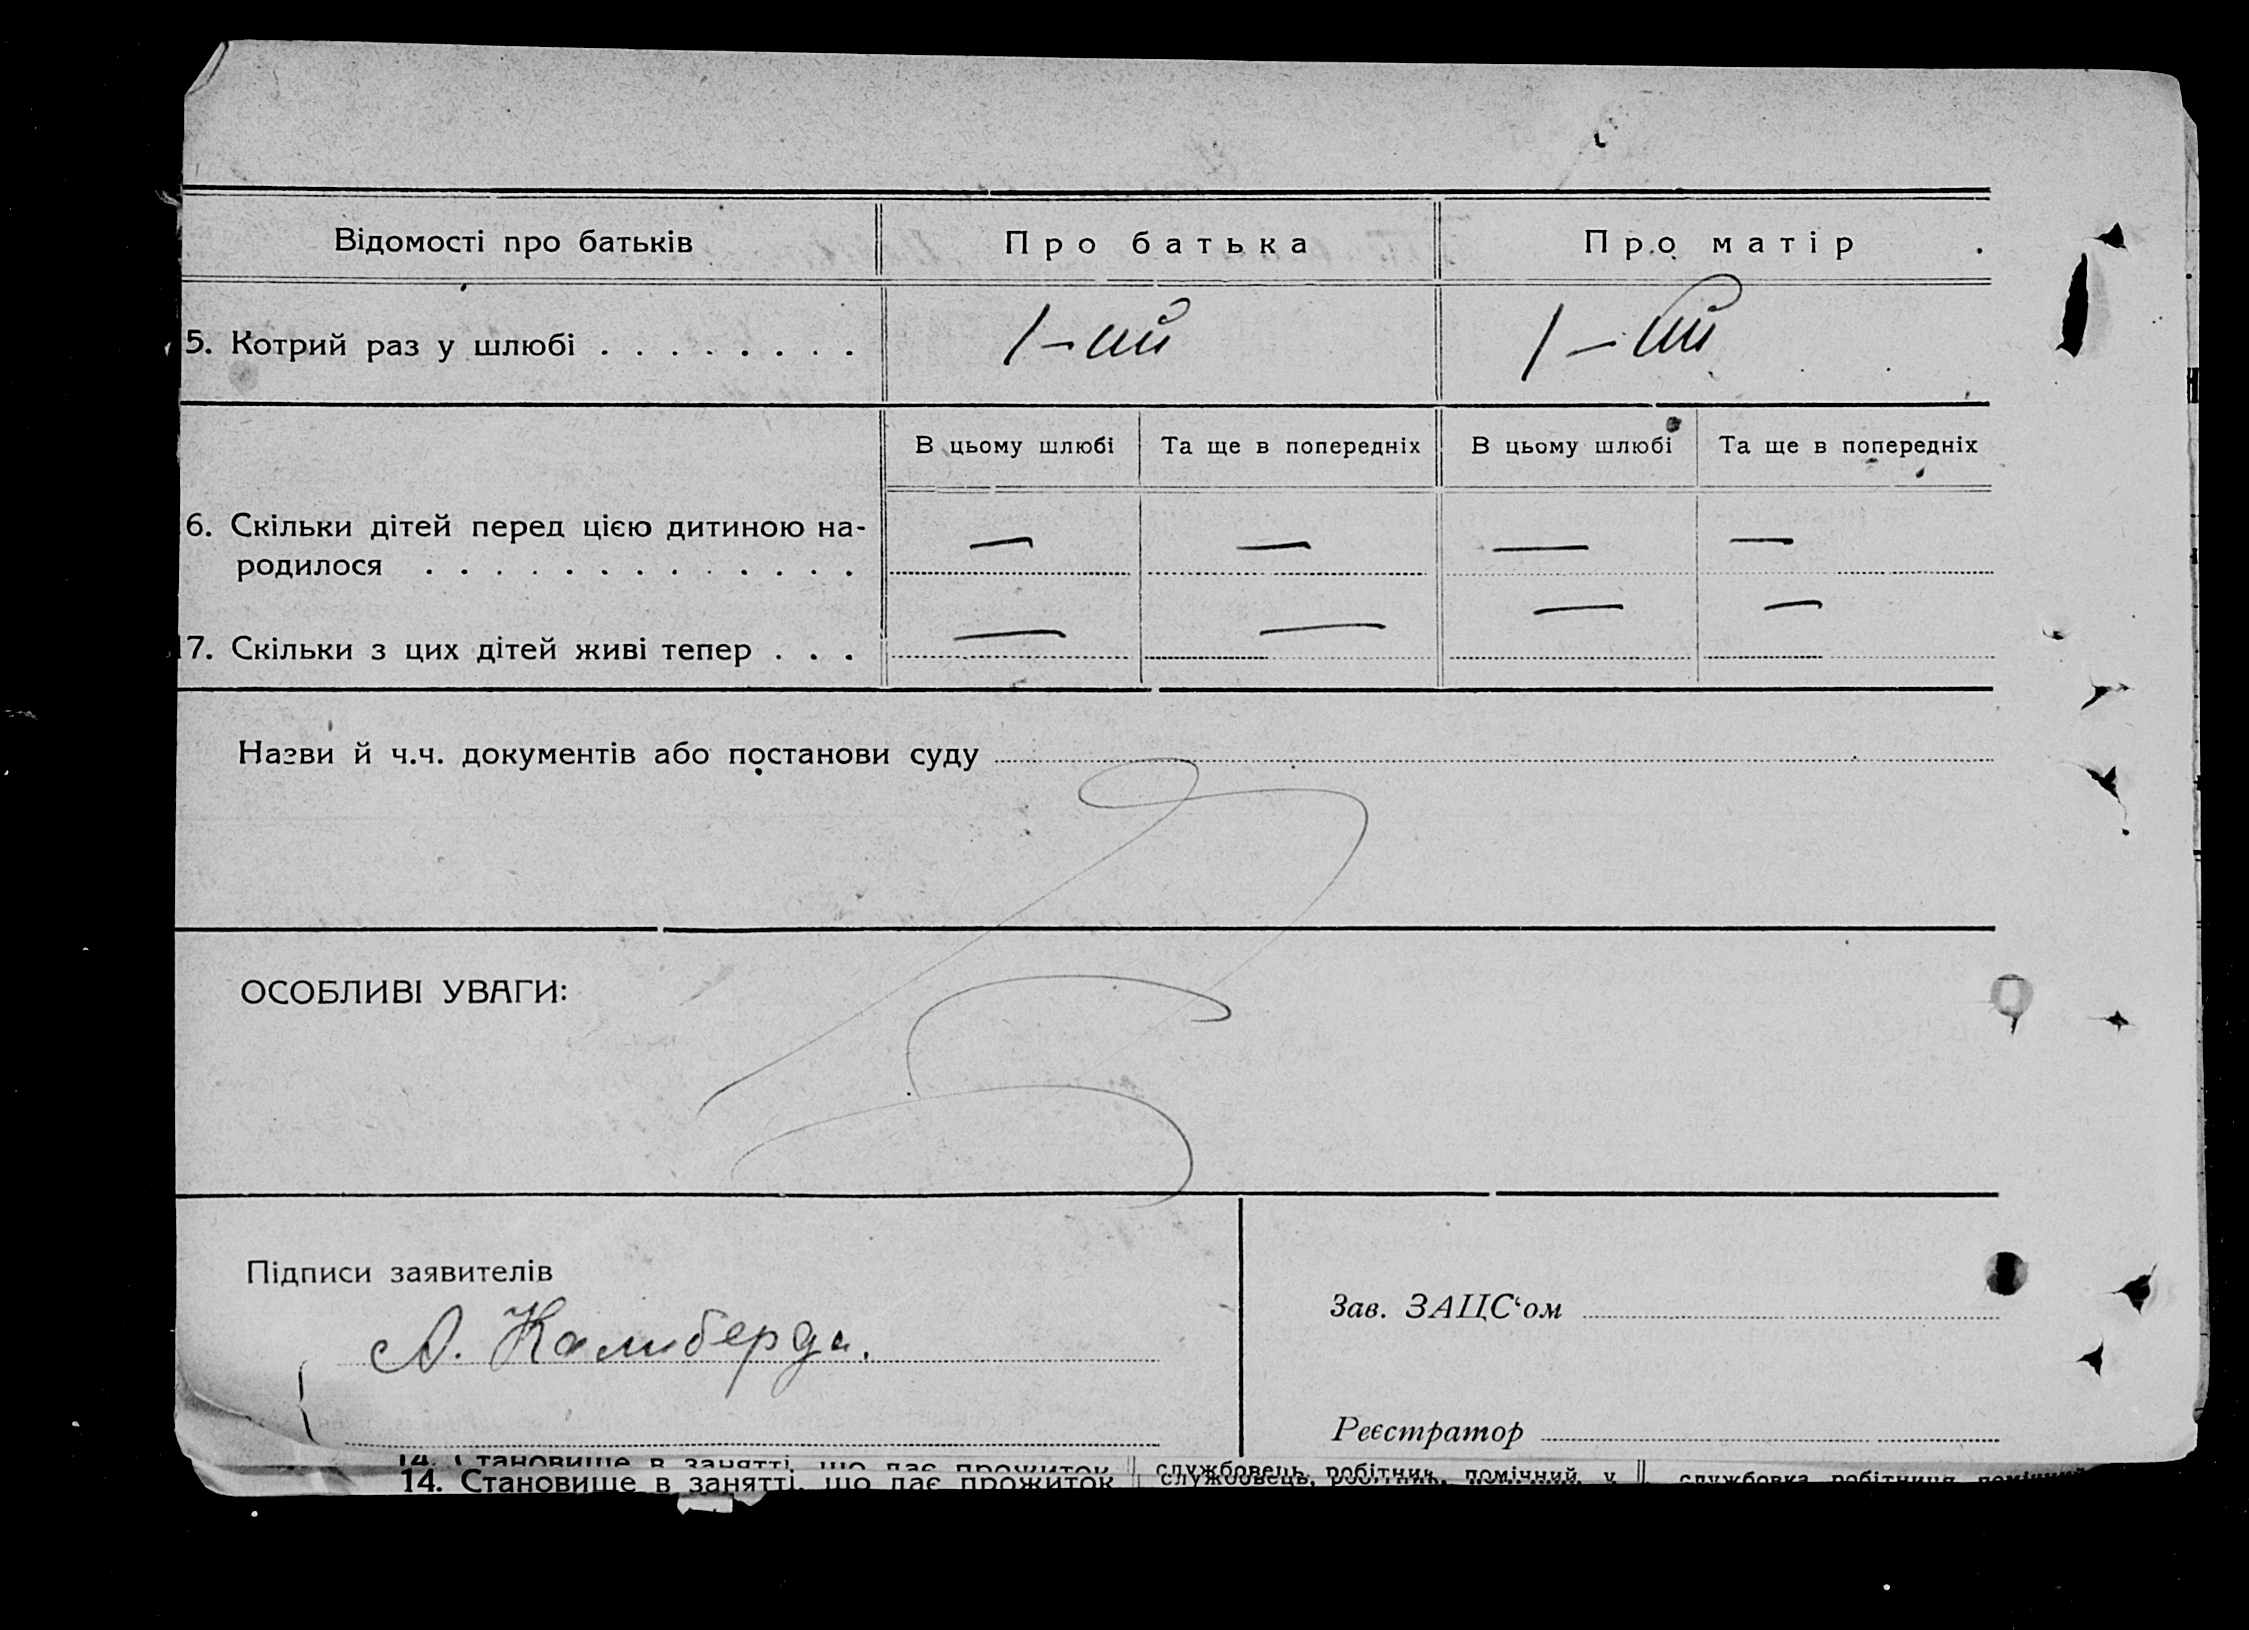 Відомості про батьків Про батька Про матір
5. Котрий раз у шлюбі . . . . . . . . 1-ий 1-ий
В цьому шлюбі Та ще в попередніх В цьому шлюбі Та ще в попередніх
6. Скільки дітей перед цією дитиною на-
родилося . . . . . . . . . . . . . — — — —
17. Скільки з цих дітей живі тепер . . . — — — —
Назви й ч.ч. документів або постанови суду
ОСОБЛИВІ УВАГИ:
Підписи заявителів
Зав. ЗАЦС‘ом
А. Калиберда.
Реєстратор
14. Становище в занятті, що дає прожиток службовець, робітник, помічний у службовка робітниця
14. Становище в занятті, що дає прожиток службовець, робітник, помічний у службовка робітниця